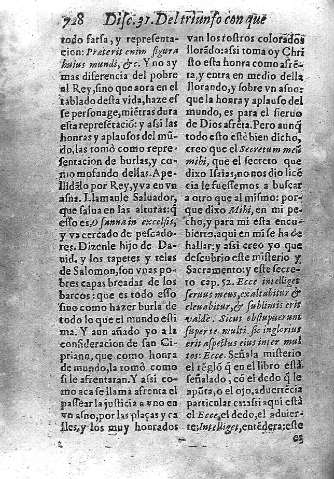 728 Disc. 31. Del triunfo con que
todo farsa, y representa-
cion: Præterit enim figura
huius mundi, &c. Y no ay
mas diferencia del pobre
al Rey, sino que aora en el
tablado desta vida, haze ese
se personage, miētras dura
esta representació: y assi las
honras y aplausos del mū-
do, las tomò como repre-
sentacion de burlas, y co-
mo mofando dellas. Ape-
llidálo por Rey, y va en vn
asna. Llamanle Saluador,
que salua en las alturas: q̄
esso es, Osanna in excelsis,
y va cercado de pescado-
res. Dizenle hijo de Da-
uid, y los tapetes y telas
de Salomon, son vnas po-
bres capas breadas de los
barcos: que es todo esso
sino como hazer burla de
todo lo que el mundo esti
ma. Y aun añado yo a la
consideracion de san Ci-
priano, que como honra
de mundo, la tomò como
si le afrentaran. Y assi co-
mo aca se llama afrenta el
passear la justicia a vno en
vn asno, por las plaças y ca
lles, y los muy honrados
van los rostros colorados
llorādo: assi toma oy Chri
sto esta honra como afrē-
ta, y entra en medio della
llorando, y sobre vn asno:
que la honra y aplauso del
mundo, es para el sieruo
de Dios afrēta. Pero aunq̄
todo esto estè bien dicho,
creo que el Secretum meū
mihi, que el secreto que
dixo Isaias, no nos dio licē
cia le fuessemos a buscar
a otro que al mismo: por
que dixo Mihi, en mi pe-
cho, y para mi esta encu-
bierto, aqui en mi se ha de
hallar: y assi creo yo que
descubrio este misterio y
Sacramento: y este secre-
to cap. 52. Ecce intelliget
seruus meus, exaltabitur &
eleuabitur, & sublimis erit
valde. Sicut obstupuerunt
super te multi, sic inglorius
erit aspectus eius inter mul
tos: Ecce. Señala misterio
el reglō q̄ en el libro està
señalado, cō el dedo q̄ le
apūta, o el ojo, aduertēcia
particular: assi aqui està
el Ecce, el dedo, el aduier-
te: Intelliget, entēderà: este
es